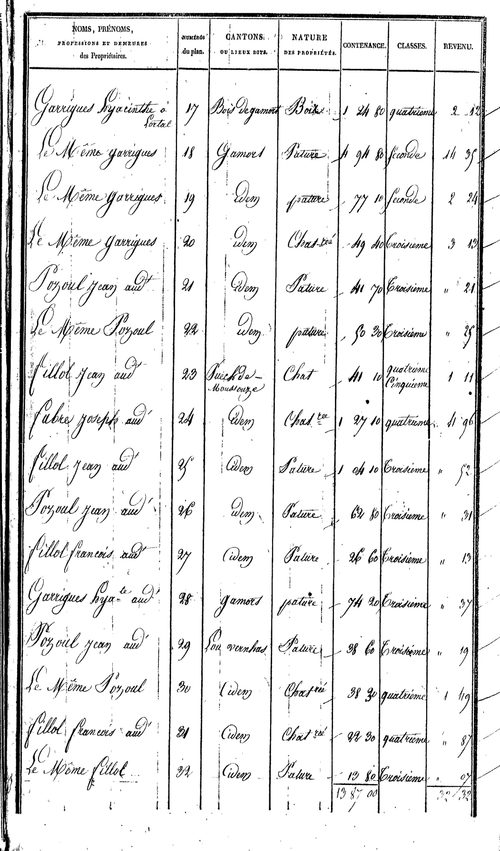 NOMS, PRÉNOMS, PROFESSIONS ET DEMEURES des Propriétaires. NUMÉROS du plan. CANTONS OU LIEUX DITS. NATURE DES PROPRIÉTÉS. CONTENANCE. CLASSES. REVENU.
Garrigues hyacinthe à Lortal 17 Bois de gamors Bois 1 24 80 quatrième 2 12
Le Même garrigues 18 Gamors Pature 4 94 80 Seconde 14 35
Le Même Garrigues 19 idem pature 77 10 Seconde 2 24
Le Même garrigues 20 idem Chas.rée 49 40 Troisieme 3 13
Pozoul jean aud.t 21 idem Pature 41 70 Troisieme " 21
Le Même Pozoul 22 idem pature 50 30 Troisieme " 25
fillol jean aud.t 23 Puech de Moussouze Chat 41 10 quatrieme Cinquieme 1 11
fabre joseph aud.t 24 idem Chas.rée 1 27 10 quatrieme 4 96
fillol jean aud.t 25 idem Pature 1 04 10 Troisieme " 52
Pozoul jean aud.t 26 idem Pature 62 80 Troisieme " 31
fillol francois aud.t 27 idem Pature 26 60 Troisieme " 13
Garrigues hya.te aud.t 28 gamors pature 74 20 Troisieme " 37
Pozoul jean aud.t 29 Lou vernhas Pature 38 60 Troisieme " 19
Le Même Pozoul 30 idem Chas.rée 38 30 quatrieme 1 49
fillol francois aud.t 31 idem Chas.rée 22 30 quatrieme " 87
Le Même fillol 32 idem Pature 13 80 Troisieme " 07
13 87 00 32/32